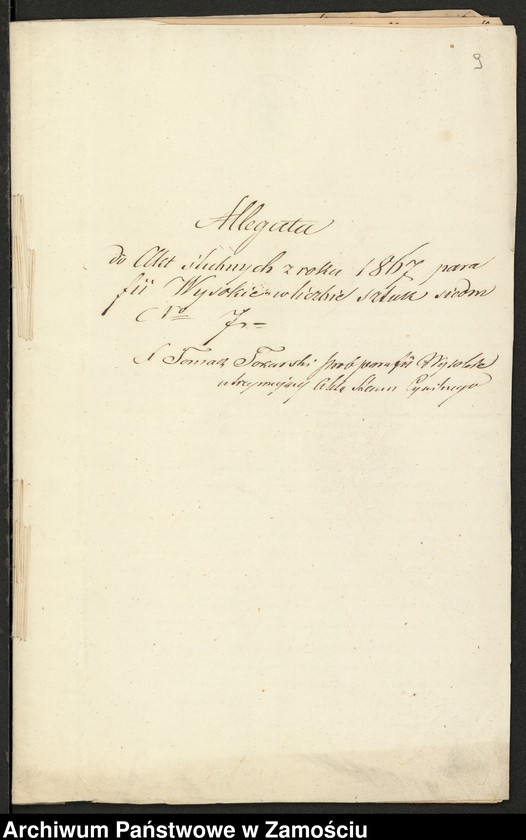 9
Allegata
do Akt ślubnych z roku 1867 para
fii Wysokie w liczbie sztuk siedm
Nro 7.=
X Tomasz Tokarski prob parafii Wysokie
utrzymujący Akta Stanu Cywilnego
Archiwum Państwowe w Zamościu